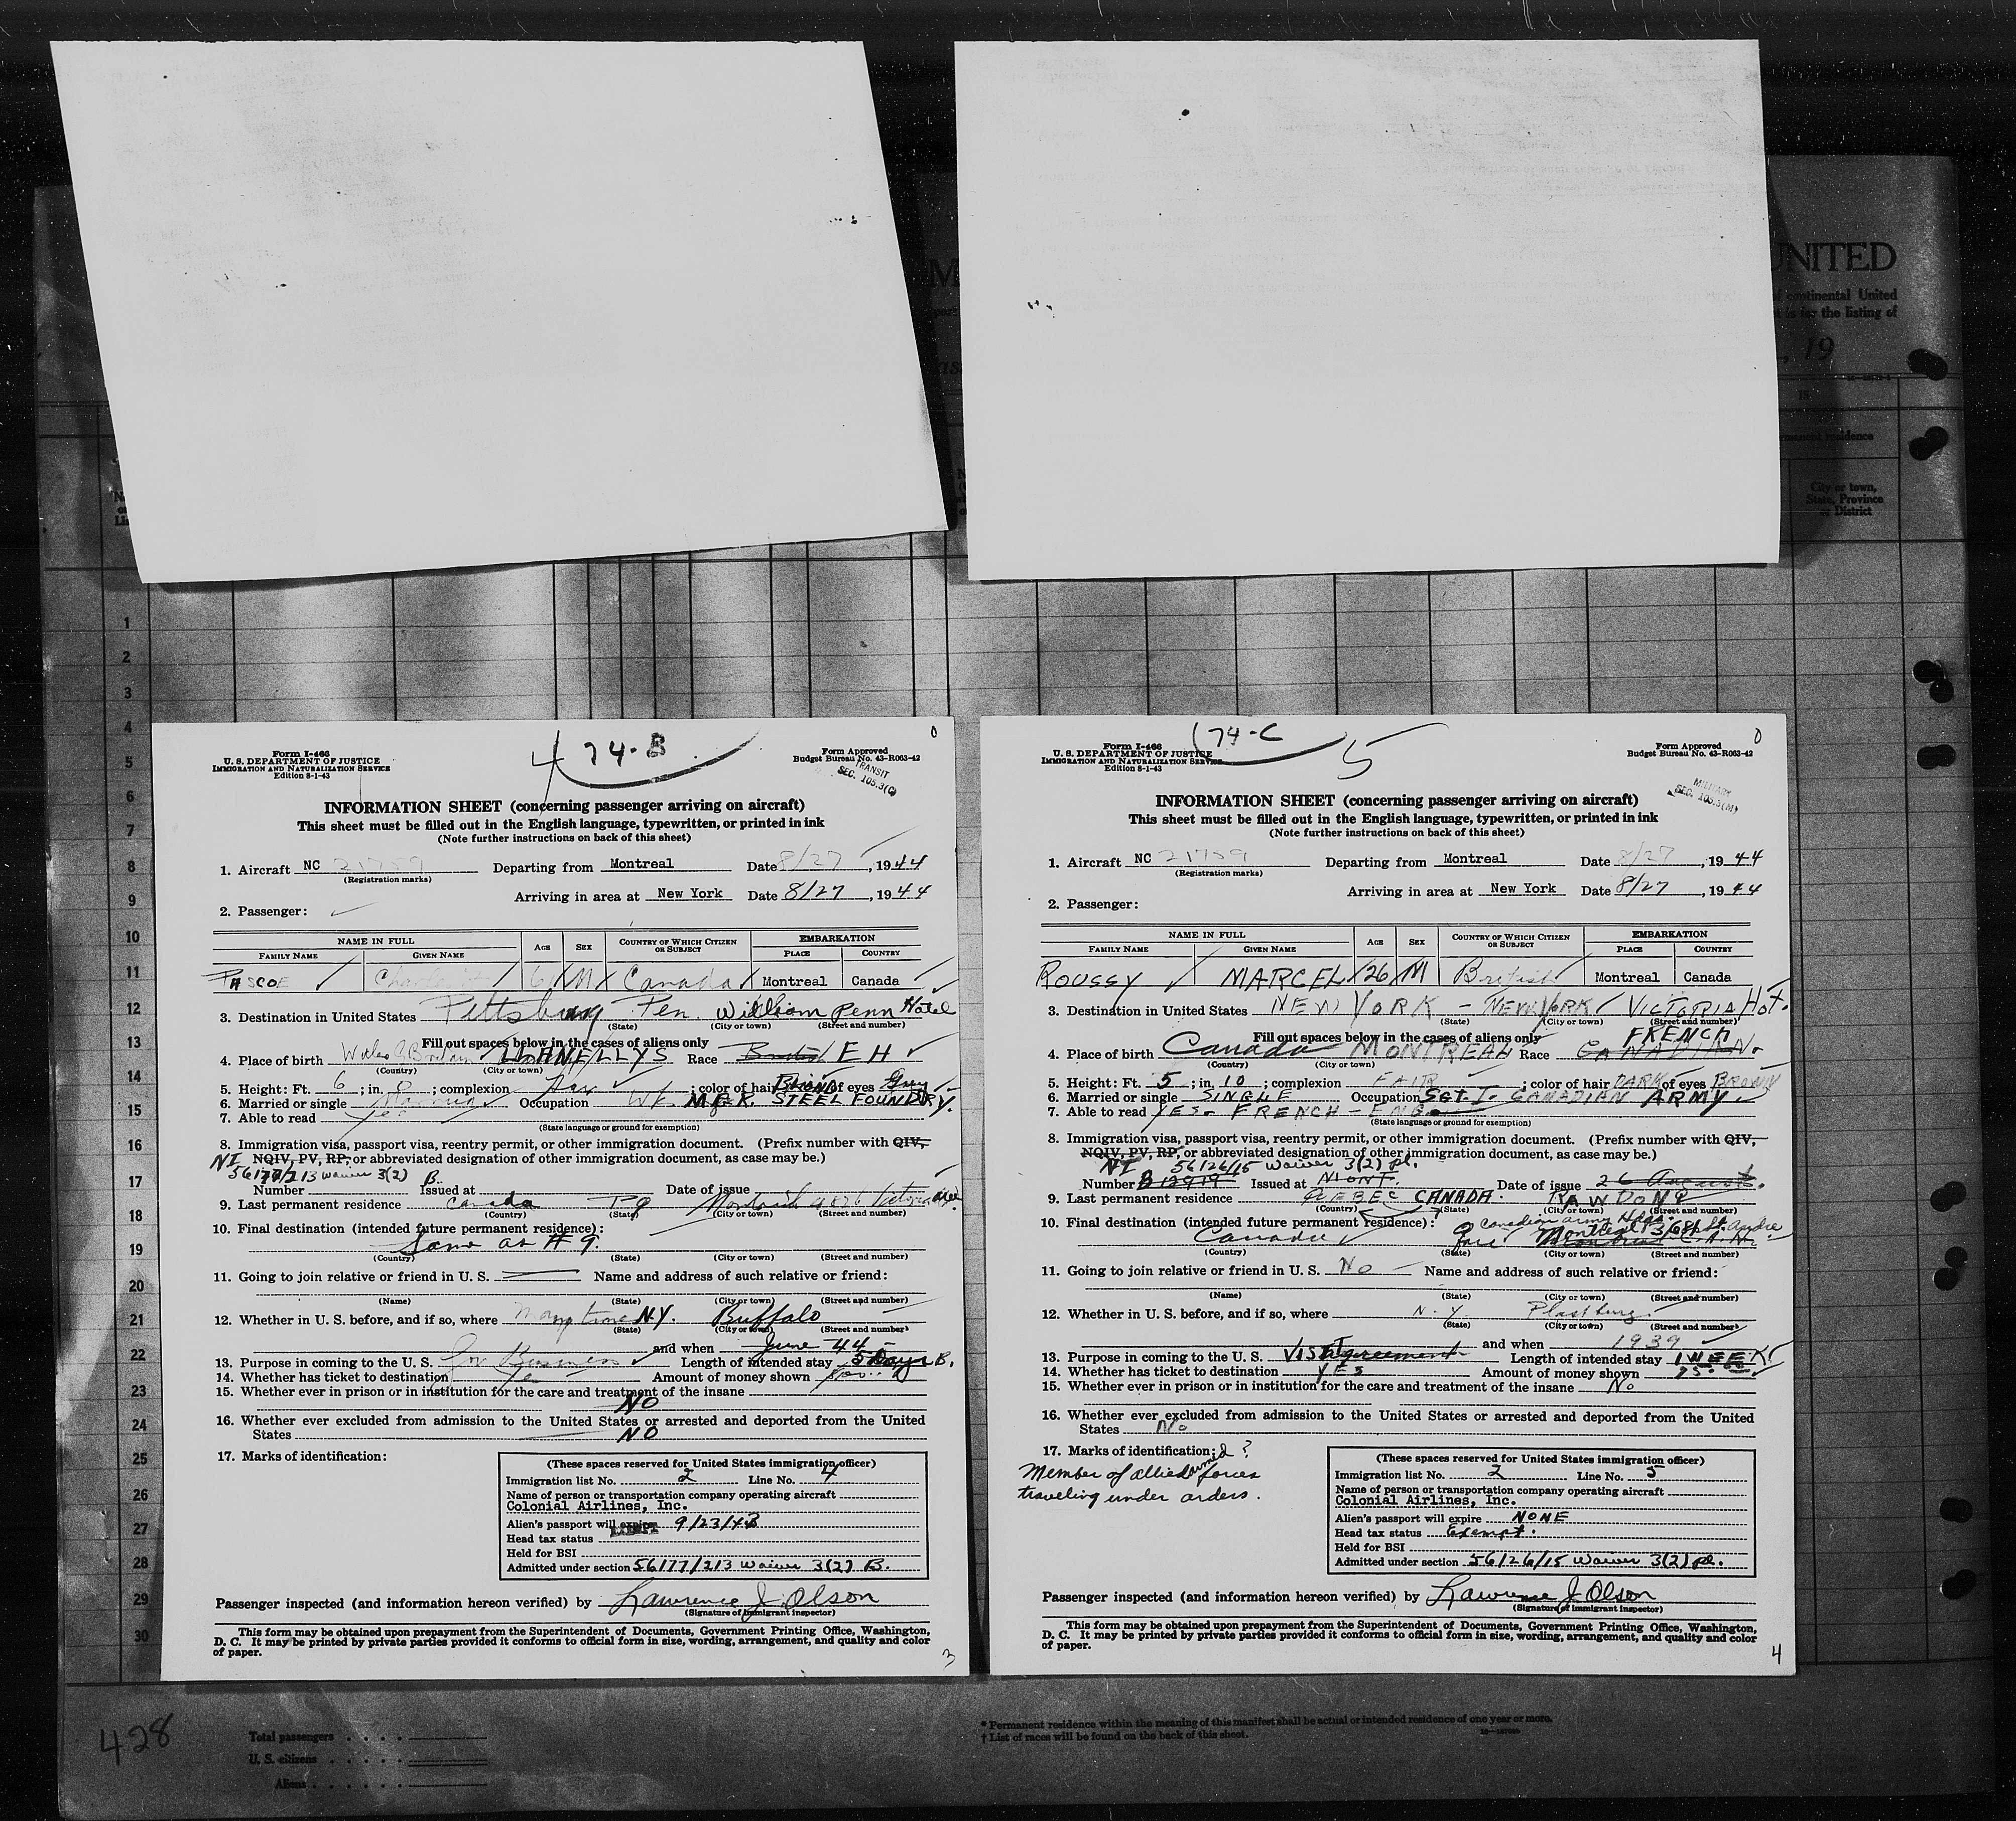 UNITED
continental United
the listing of
, 19
City or town,
State, Province
or District
1
2
3
4
5
6
7
8
9
10
11
12
13
14
15
16
17
18
19
20
21
22
23
24
25
26
27
28
29
30
0
4 74-B
Form I-466
U. S. DEPARTMENT OF JUSTICE
IMMIGRATION AND NATURALIZATION SERVICE
Edition 8-1-43
Form Approved
Budget Bureau No. 43-R063-42
TRANSIT
SEC. 105.3(C)
INFORMATION SHEET (concerning passenger arriving on aircraft)
This sheet must be filled out in the English language, typewritten, or printed in ink
(Note further instructions on back of this sheet)
1. Aircraft NC 21759 Departing from Montreal Date 8/27, 1944
(Registration marks)
Arriving in area at New York Date 8/27, 1944
2. Passenger:
NAME IN FULL AGE SEX COUNTRY OF WHICH CITIZEN OR SUBJECT EMBARKATION
FAMILY NAME GIVEN NAME PLACE COUNTRY
PASCOE M Canada Montreal Canada
3. Destination in United States Pittsburg Pen. William Penn Hotel
(State) (City or town) (Street and number)
Fill out spaces below in the cases of aliens only
4. Place of birth Wales G. Britain LLANELLYS Race E H
(Country) (City or town)
5. Height: Ft. 6; in. 0; complexion ; color of hair of eyes Grey
6. Married or single Married Occupation STEEL FOUNDRY.
7. Able to read yes
(State language or ground for exemption)
8. Immigration visa, passport visa, reentry permit, or other immigration document. (Prefix number with QIV,
NI NQIV, PV, RP, or abbreviated designation of other immigration document, as case may be.)
56177/213 Waiver 3(2) B.
Number Issued at Date of issue
9. Last permanent residence Canada P.Q Montreal Victoria Ave.
(Country) (State) (City or town) (Street and number)
10. Final destination (intended future permanent residence):
Same as #9.
(Country) (State) (City or town) (Street and number)
11. Going to join relative or friend in U. S. Name and address of such relative or friend:
(Name) (State) (City or town) (Street and number)
12. Whether in U. S. before, and if so, where Many times N.Y. Buffalo
(State) (City or town) (Street and number)
and when June 44
13. Purpose in coming to the U. S. Business Length of intended stay 5 Days B.
14. Whether has ticket to destination Amount of money shown
15. Whether ever in prison or in institution for the care and treatment of the insane
NO
16. Whether ever excluded from admission to the United States or arrested and deported from the United
States NO
17. Marks of identification:
(These spaces reserved for United States immigration officer)
Immigration list No. 2 Line No. 4
Name of person or transportation company operating aircraft
Colonial Airlines, Inc.
Alien's passport will expire 9/23/48
Head tax status EXEMPT
Held for BSI
Admitted under section 56177/213 Waiver 3(2) B.
Passenger inspected (and information hereon verified) by Lawrence J. Olson
(Signature of immigrant inspector)
This form may be obtained upon prepayment from the Superintendent of Documents, Government Printing Office, Washington,
D. C. It may be printed by private parties provided it conforms to official form in size, wording, arrangement, and quality and color
of paper.
3
0
74-C 5
Form I-466
U. S. DEPARTMENT OF JUSTICE
IMMIGRATION AND NATURALIZATION SERVICE
Edition 8-1-43
Form Approved
Budget Bureau No. 43-R063-42
MILITARY
SEC. 105.3(M)
INFORMATION SHEET (concerning passenger arriving on aircraft)
This sheet must be filled out in the English language, typewritten, or printed in ink
(Note further instructions on back of this sheet)
1. Aircraft NC 21759 Departing from Montreal Date 8/27, 1944
(Registration marks)
Arriving in area at New York Date 8/27, 1944
2. Passenger:
NAME IN FULL AGE SEX COUNTRY OF WHICH CITIZEN OR SUBJECT EMBARKATION
FAMILY NAME GIVEN NAME PLACE COUNTRY
ROUSSY MARCEL 26 M British Montreal Canada
3. Destination in United States NEW YORK - NEW YORK VICTORIA HOT.
(State) (City or town) (Street and number)
Fill out spaces below in the cases of aliens only
FRENCH
4. Place of birth Canada MONTREAL Race CANADIAN
(Country) (City or town)
5. Height: Ft. 5; in. 10; complexion FAIR; color of hair DARK of eyes BROWN
6. Married or single SINGLE Occupation SGT. I. CANADIAN ARMY
7. Able to read YES - FRENCH - ENG.
(State language or ground for exemption)
8. Immigration visa, passport visa, reentry permit, or other immigration document. (Prefix number with QIV,
NQIV, PV, RP, or abbreviated designation of other immigration document, as case may be.)
NI 56126/15 Waiver 3(2) pl.
Number Issued at MONT. Date of issue 26 August.
9. Last permanent residence QUEBEC CANADA. RAWDON
(Country) (State) (City or town) (Street and number)
10. Final destination (intended future permanent residence): Canadian Army Hdqs.
Canada Montreal 3681 St. Andre
(Country) (State) (City or town) (Street and number)
11. Going to join relative or friend in U. S. No Name and address of such relative or friend:
(Name) (State) (City or town) (Street and number)
12. Whether in U. S. before, and if so, where N.Y Plasburg
(State) (City or town) (Street and number)
and when 1939
13. Purpose in coming to the U. S. VISIT Length of intended stay 1 WEEK
14. Whether has ticket to destination YES Amount of money shown 75.
15. Whether ever in prison or in institution for the care and treatment of the insane No
16. Whether ever excluded from admission to the United States or arrested and deported from the United
States No
17. Marks of identification:
Member of allied armed forces
traveling under orders.
(These spaces reserved for United States immigration officer)
Immigration list No. 2 Line No. 5
Name of person or transportation company operating aircraft
Colonial Airlines, Inc.
Alien's passport will expire NONE
Head tax status Exempt.
Held for BSI
Admitted under section 56126/15 Waiver 3(2) pl.
Passenger inspected (and information hereon verified) by Lawrence J. Olson
(Signature of immigrant inspector)
This form may be obtained upon prepayment from the Superintendent of Documents, Government Printing Office, Washington,
D. C. It may be printed by private parties provided it conforms to official form in size, wording, arrangement, and quality and color
of paper.
4
428
Total passengers
U. S. citizens
Aliens
* Permanent residence within the meaning of this manifest shall be actual or intended residence of one year or more.
† List of races will be found on the back of this sheet.